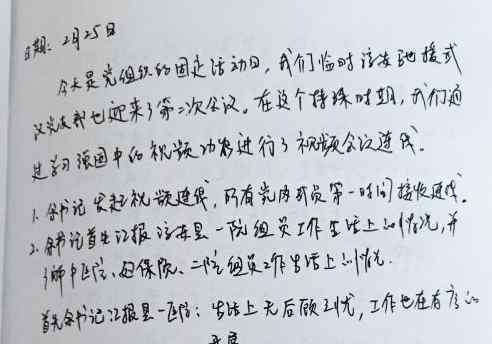 日期：2月25日
今天是党组织的固定活动日，我们临时援
汉党支部也迎来了第二次会议。在这个特殊时期，我们通
过学习强国中的视频功能进行了视频会议连线。
1. 余书记发起视频连线，所有党内成员第一时间接收连线。
2. 余书记首先汇报 县一院组员工作生活上的情况，并
中医院、妇保院、二院组员工作生活上的情况。
首先余书记汇报县一医院：生活上无后顾之忧，工作也在有序的
开展